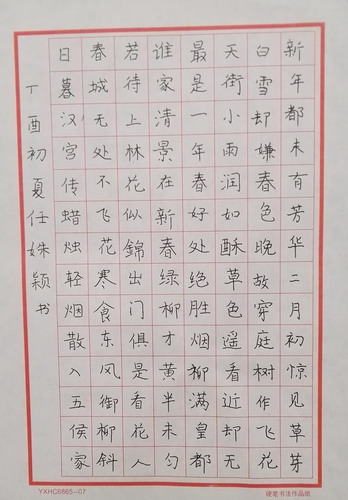 新年都未有芳华二月初惊见草芽
白雪却嫌春色晚故穿庭树作飞花
天街小雨润如酥草色遥看近却无
最是一年春好处绝胜烟柳满皇都
谁家清景在新春绿柳才黄半未匀
若待上林花似錦出门俱是看花人
春城无处不飞花寒食东风御柳斜
日暮汉宫传蜡烛轻烟散入五侯家
丁酉初夏任姝颖书
YXHC6865-07
硬笔书法作品纸